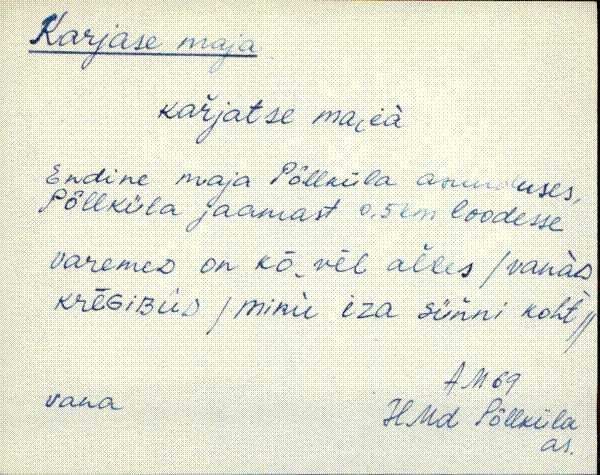 Karjase maja
kar̆jatse maɪ̯ä
Endine maja Põllküla asunduses,
Põllküla jaamast 0,5 km loodesse
varemeD on kõ_vēl al̆les / vanàD
krēGiBùD / minù iza sün̆ni koht //
AM 69
vana
HMd Põllküla
as.